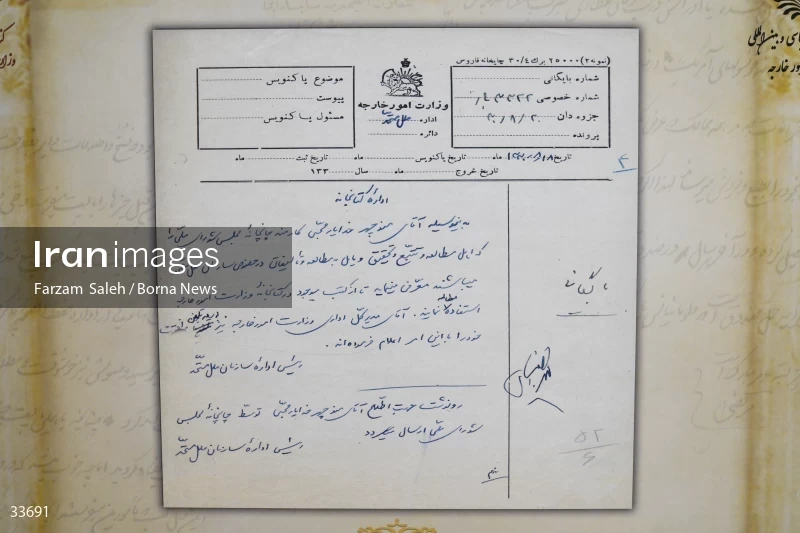 (نمونه۲) ۲۵۰۰۰ برگ ۳۰/۴ چاپخانه فاروس
شماره بایگانی
شماره خصوصی
جزوه دان ۴۰/۸/۲۰
پرونده
وزارت امور خارجه
اداره ملل متحد
دائره
موضوع پاکنویس
پیوست
مسئول پاکنویس
تاریخ ماه تاریخ پاکنویس ماه تاریخ ثبت ماه
تاریخ خروج ماه سال ۱۳۳
۴
اداره کتابخانه
بدینوسیله آقای منوچهر خدایار محبی کارمند چاپخانه مجلس شورای ملی را
که مایل مطالعه و تتبع و تحقیق و مایل به مطالعه و تألیفاتی در خصوص سازمان ملل
میباشند معرفی مینماید تا از کتب موجود در کتابخانه وزارت امور خارجه
مطالعه
استفاده نمایند. آقای مدیر کل اداری وزارت امور خارجه نیز موافقت
خود را با این امر اعلام فرموده اند.
رئیس اداره سازمان ملل متحد
رونوشت جهت اطلاع آقای منوچهر خدایار محبی توسط چاپخانه مجلس
شورای ملی ارسال میگردد
رئیس اداره سازمان ملل متحد
بایگانی
۵۲
۶
Iran images
Farzam Saleh / Borna News
33691